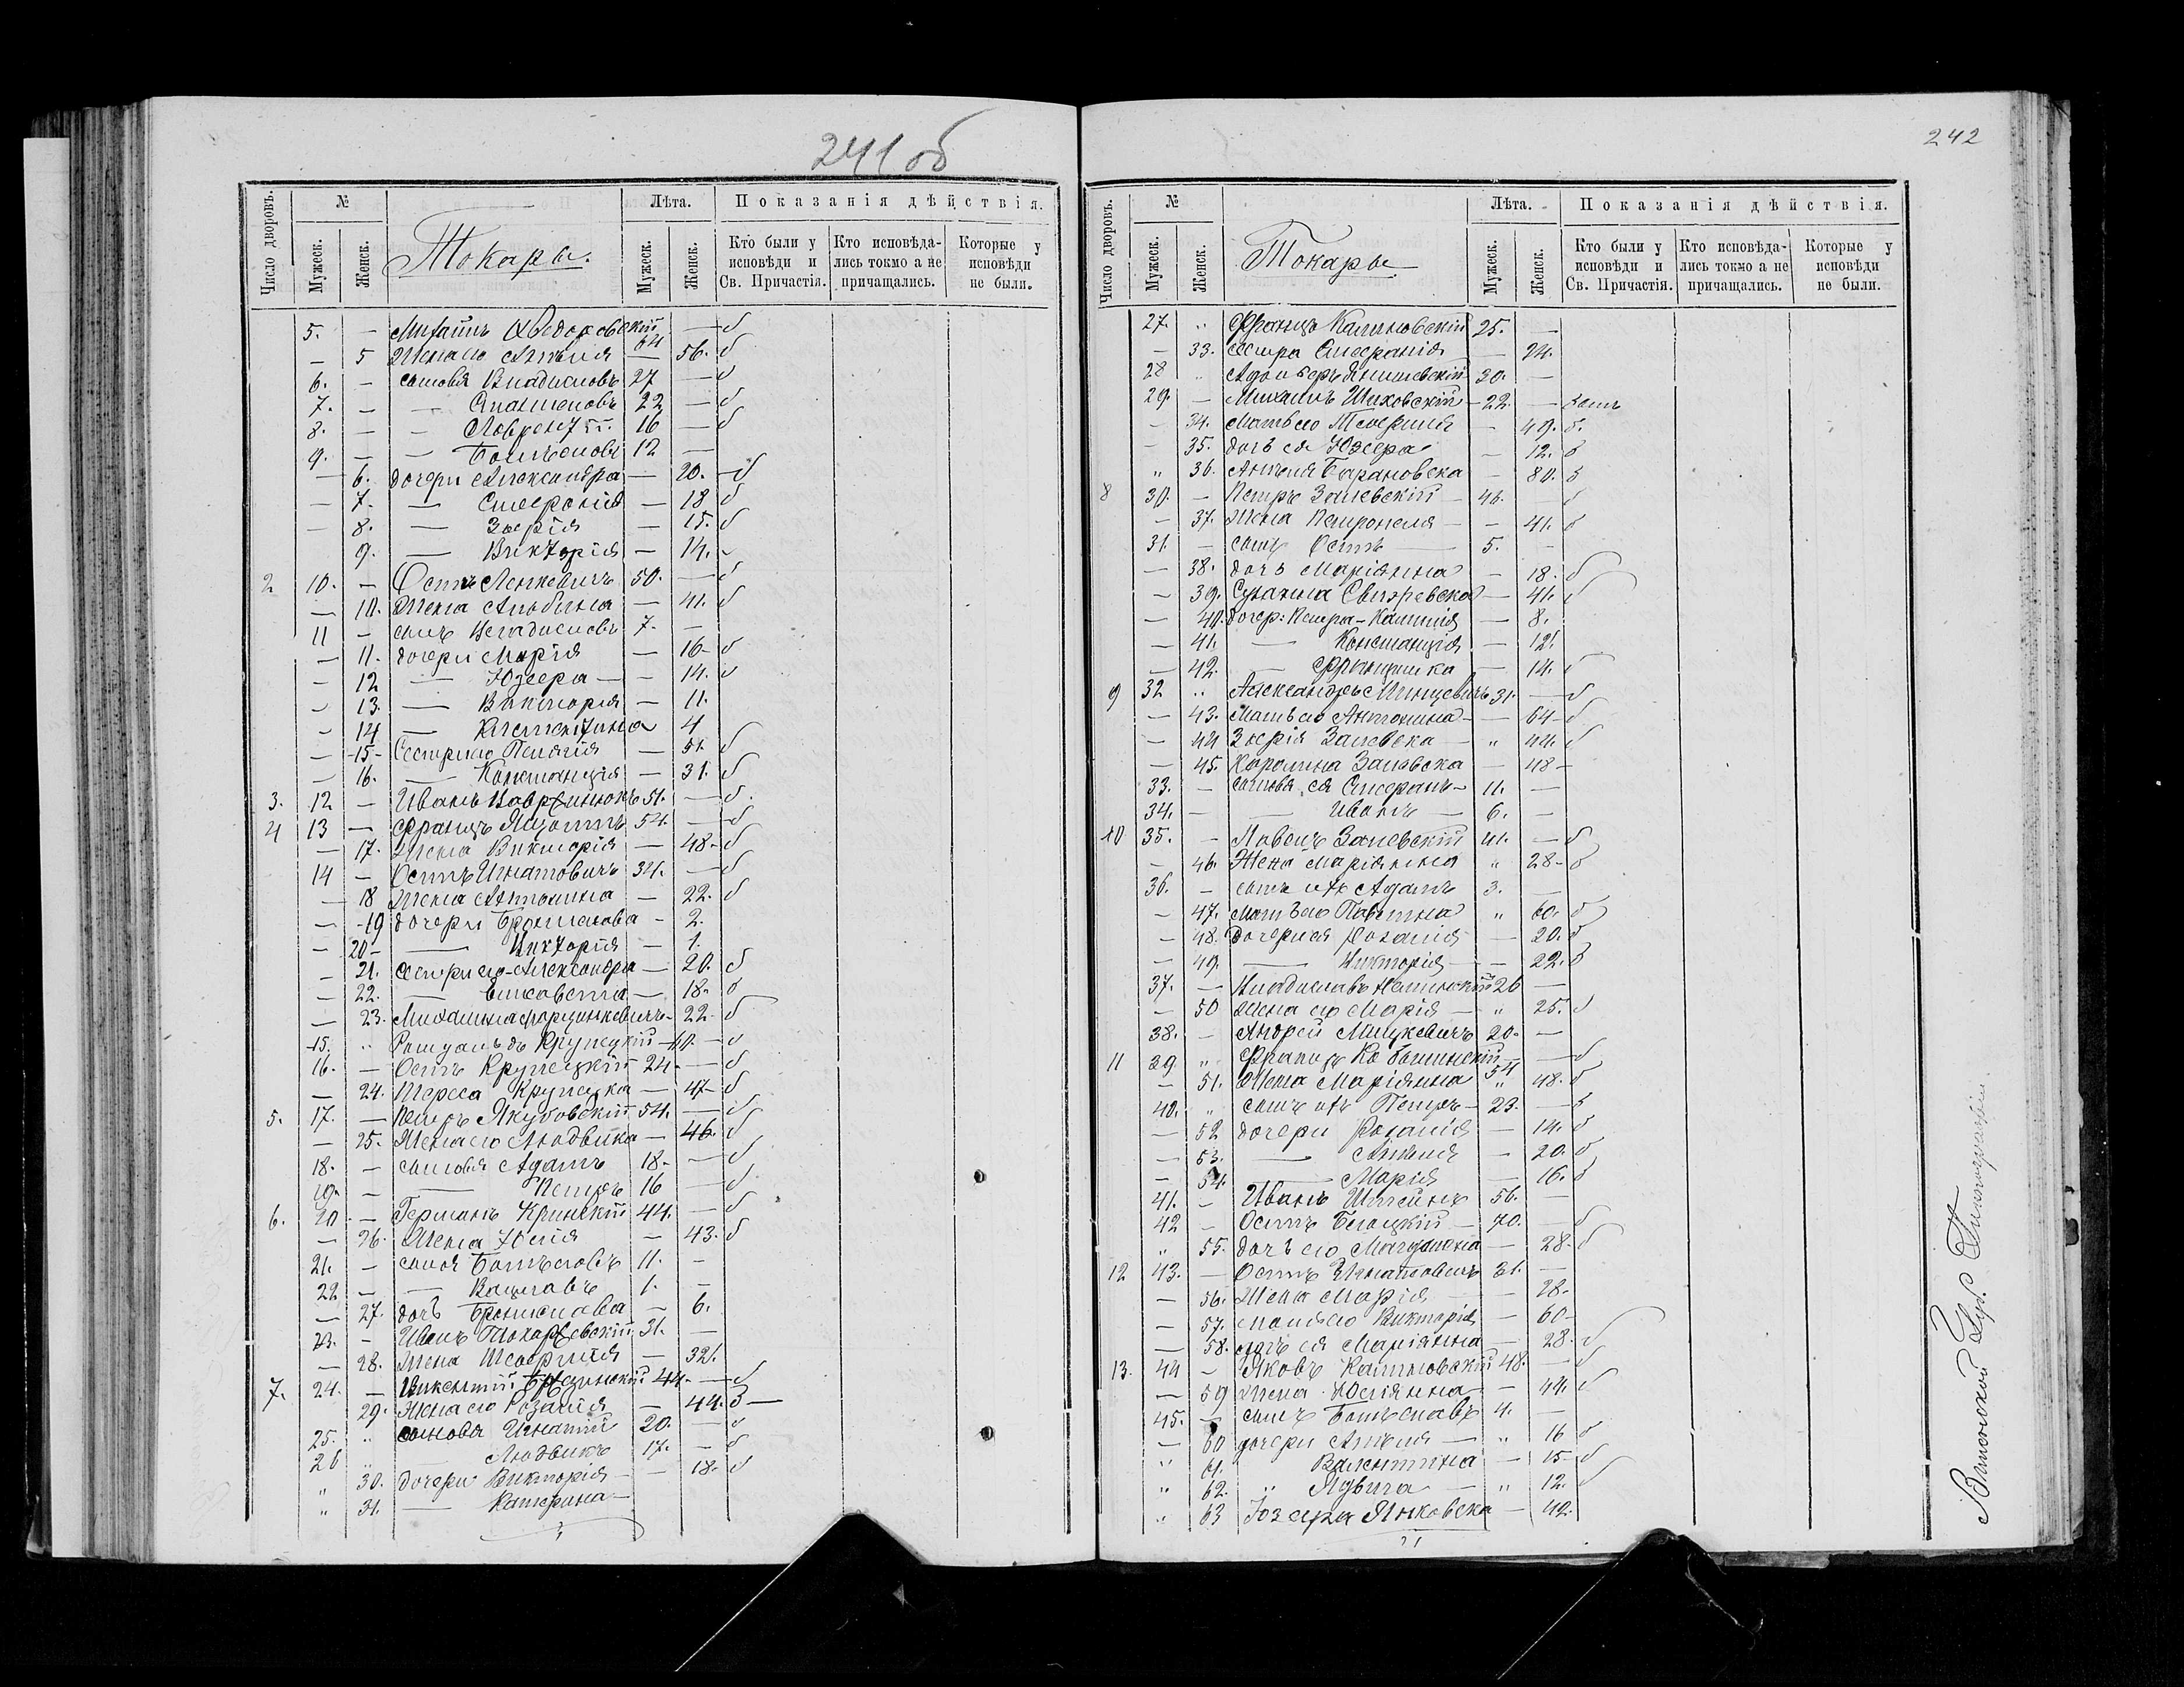 241 об
Число дворовъ.
№
Мужеск.
Женск.
Токары.
Лѣта.
Мужеск.
Женск.
Показанія дѣйствія.
Кто были у исповѣди и Св. Причастія.
Кто исповѣдались токмо а не причащались.
Которые у исповѣди не были.
5. — Михаилъ 64 — б
— 5 Жена его Анѣля — 56. б
6. — сыновья Владиславъ 27 — б
7. — — Станиславъ 22 — б
8. — — 16 — б
9. — — Болѣславъ 12 —
— 6. дочери Александра — 20. — б
— 7. — Стефанія — 18 б
— 8. — Зофія — 15. б
9. — Викторія — 14. -
2 10. — Осипъ 50. — б
— 10. Жена Альбина — 41. б
11 — сынъ Владиславъ 7. —
— 11. дочери Марія — 16 - б
— 12 — Юзефа — — 14. б
— 13. — Викторія — 11.
— 14 — Клементина 4
— 15 - Сестры его Пелагія — 51. б
— 16. — Констанція — 31. б
3. 12 — Иванъ 51. — б.
4 13 — Францъ 54. — б
— 17. Жена Викторія — 48 - б
14 — Осипъ Игнатовичъ 34. — б
— 18 Жена Антонина — 22. б
— 19 дочери Брониславa - 2.
— 20 - — Викторія — 1.
— 21. сестры его - Александра — 20. б
— 22. — Елисавета — 18. б
— 23. Михалина - 22 - б
15. " Крупецкій 40. — б
16. — Осипъ Крупецкій 24 — — б
— 24. Тереса Крупецка — 47 - б
5. 17. — Петръ Якубовскій 54. — б
— 25. Жена его Людвика — 46. б
18. — сыновья Адамъ 18 - — б
19. — — Петръ 16 — б
6. 20. — Германъ Кринскій 44. — б
— 26. Жена Юлія — 43. б
21. — сыновя Болѣславъ 11. —
22 — — Вацлавъ 1. —
— 27. дочь Бронислава — 6.
23. — Иванъ 31. —
— 28. Жена Теофилія — 32.
7. 24. — Викентій 44 — — б
29. Жена его Розалія — 44. З —
25. " сыновья Игнатій 20. — б
26 " Людвикъ 17. — б
" 30. дочери Викторія — — 18. б
" 31. — Катерина —
242
Число дворовъ.
№
Мужеск.
Женск.
Токары
Лѣта.
Мужеск.
Женск.
Показанія дѣйствія.
Кто были у исповѣди и Св. Причастія.
Кто исповѣдались токмо а не причащались.
Которые у исповѣди не были.
27. " Францъ Калиновскій 25. —
— 33. сестра Стефанія — 24.
28 " 30. —
29. — Михаилъ 22. —
— 34. мать его Теофилія — 49. б.
— 35. дочь ея Юзефа — 12. б
" 36. Анѣля Барановска — 80. б
8 30. — Петръ Залевскій — 46. — б
— 37. Жена Петронеля — — 41. б
31. — сынъ Осипъ — 5. —
— 38. дочь Маріянна — 18. б
— 39. — 41. б
— 40. дочер: Петра — 8.
— 41. — Констанція — 12.
— 42. — Францишка — 14. б
9 32 " Александръ 31. — б
— 43. Мать его Антонина — — 64 - б
— 44 Зофія Залевска — " 44. б
— 45. Каролина Залевска — 48 —
33. — сыновья ея Стефанъ — 11. —
34. — — Иванъ — 6. —
10 35. — Павелъ Залевскій 41. — б
— 46. Жена Маріянна " 28 - б
36. — сынъ ихъ Адамъ 3. —
— 47. мать его " 60. б
— 48. дочери ея Розалія — 20. б
— 49. — Викторія — — 22. б
37. — Владиславъ 26 —
— 50 Жена его Марія — " 25. б
38. — Андрей Мицкевичъ 20. —
11 39. " Францъ 54 — б
— 51. Жена Маріянна " 48. б
40. " сынъ ихъ Петръ — 23. — б
— 52 дочери Розалія — 14. б
— 53. — Анѣля — 20. б
— 54. — Марія — 16. б
41. — Иванъ 56. —
42 — Осипъ Бѣлоцкій — 70. — б
" 55. дочь его Магдалена — 28. б
12 43. — Осипъ Игнатовичъ 31. —
— 56. Жена Марія — 28.
— 57. мать его Викторія — 60 -
— 58. дочь ея Маріянна — 28. б
13. 44 — Яковъ Калиновскій 48. — б
— 59 Жена Юліянна — — 44. б
45. — сынъ Болѣславъ 4. —
— 60 дочери Анѣля — " 16 б
" 61. Валентина — 15 - б
" 62. " Ядвига — " 12. б
" 63 Юзефа Янковска — 42.
Виленской Губ. Типографіи.